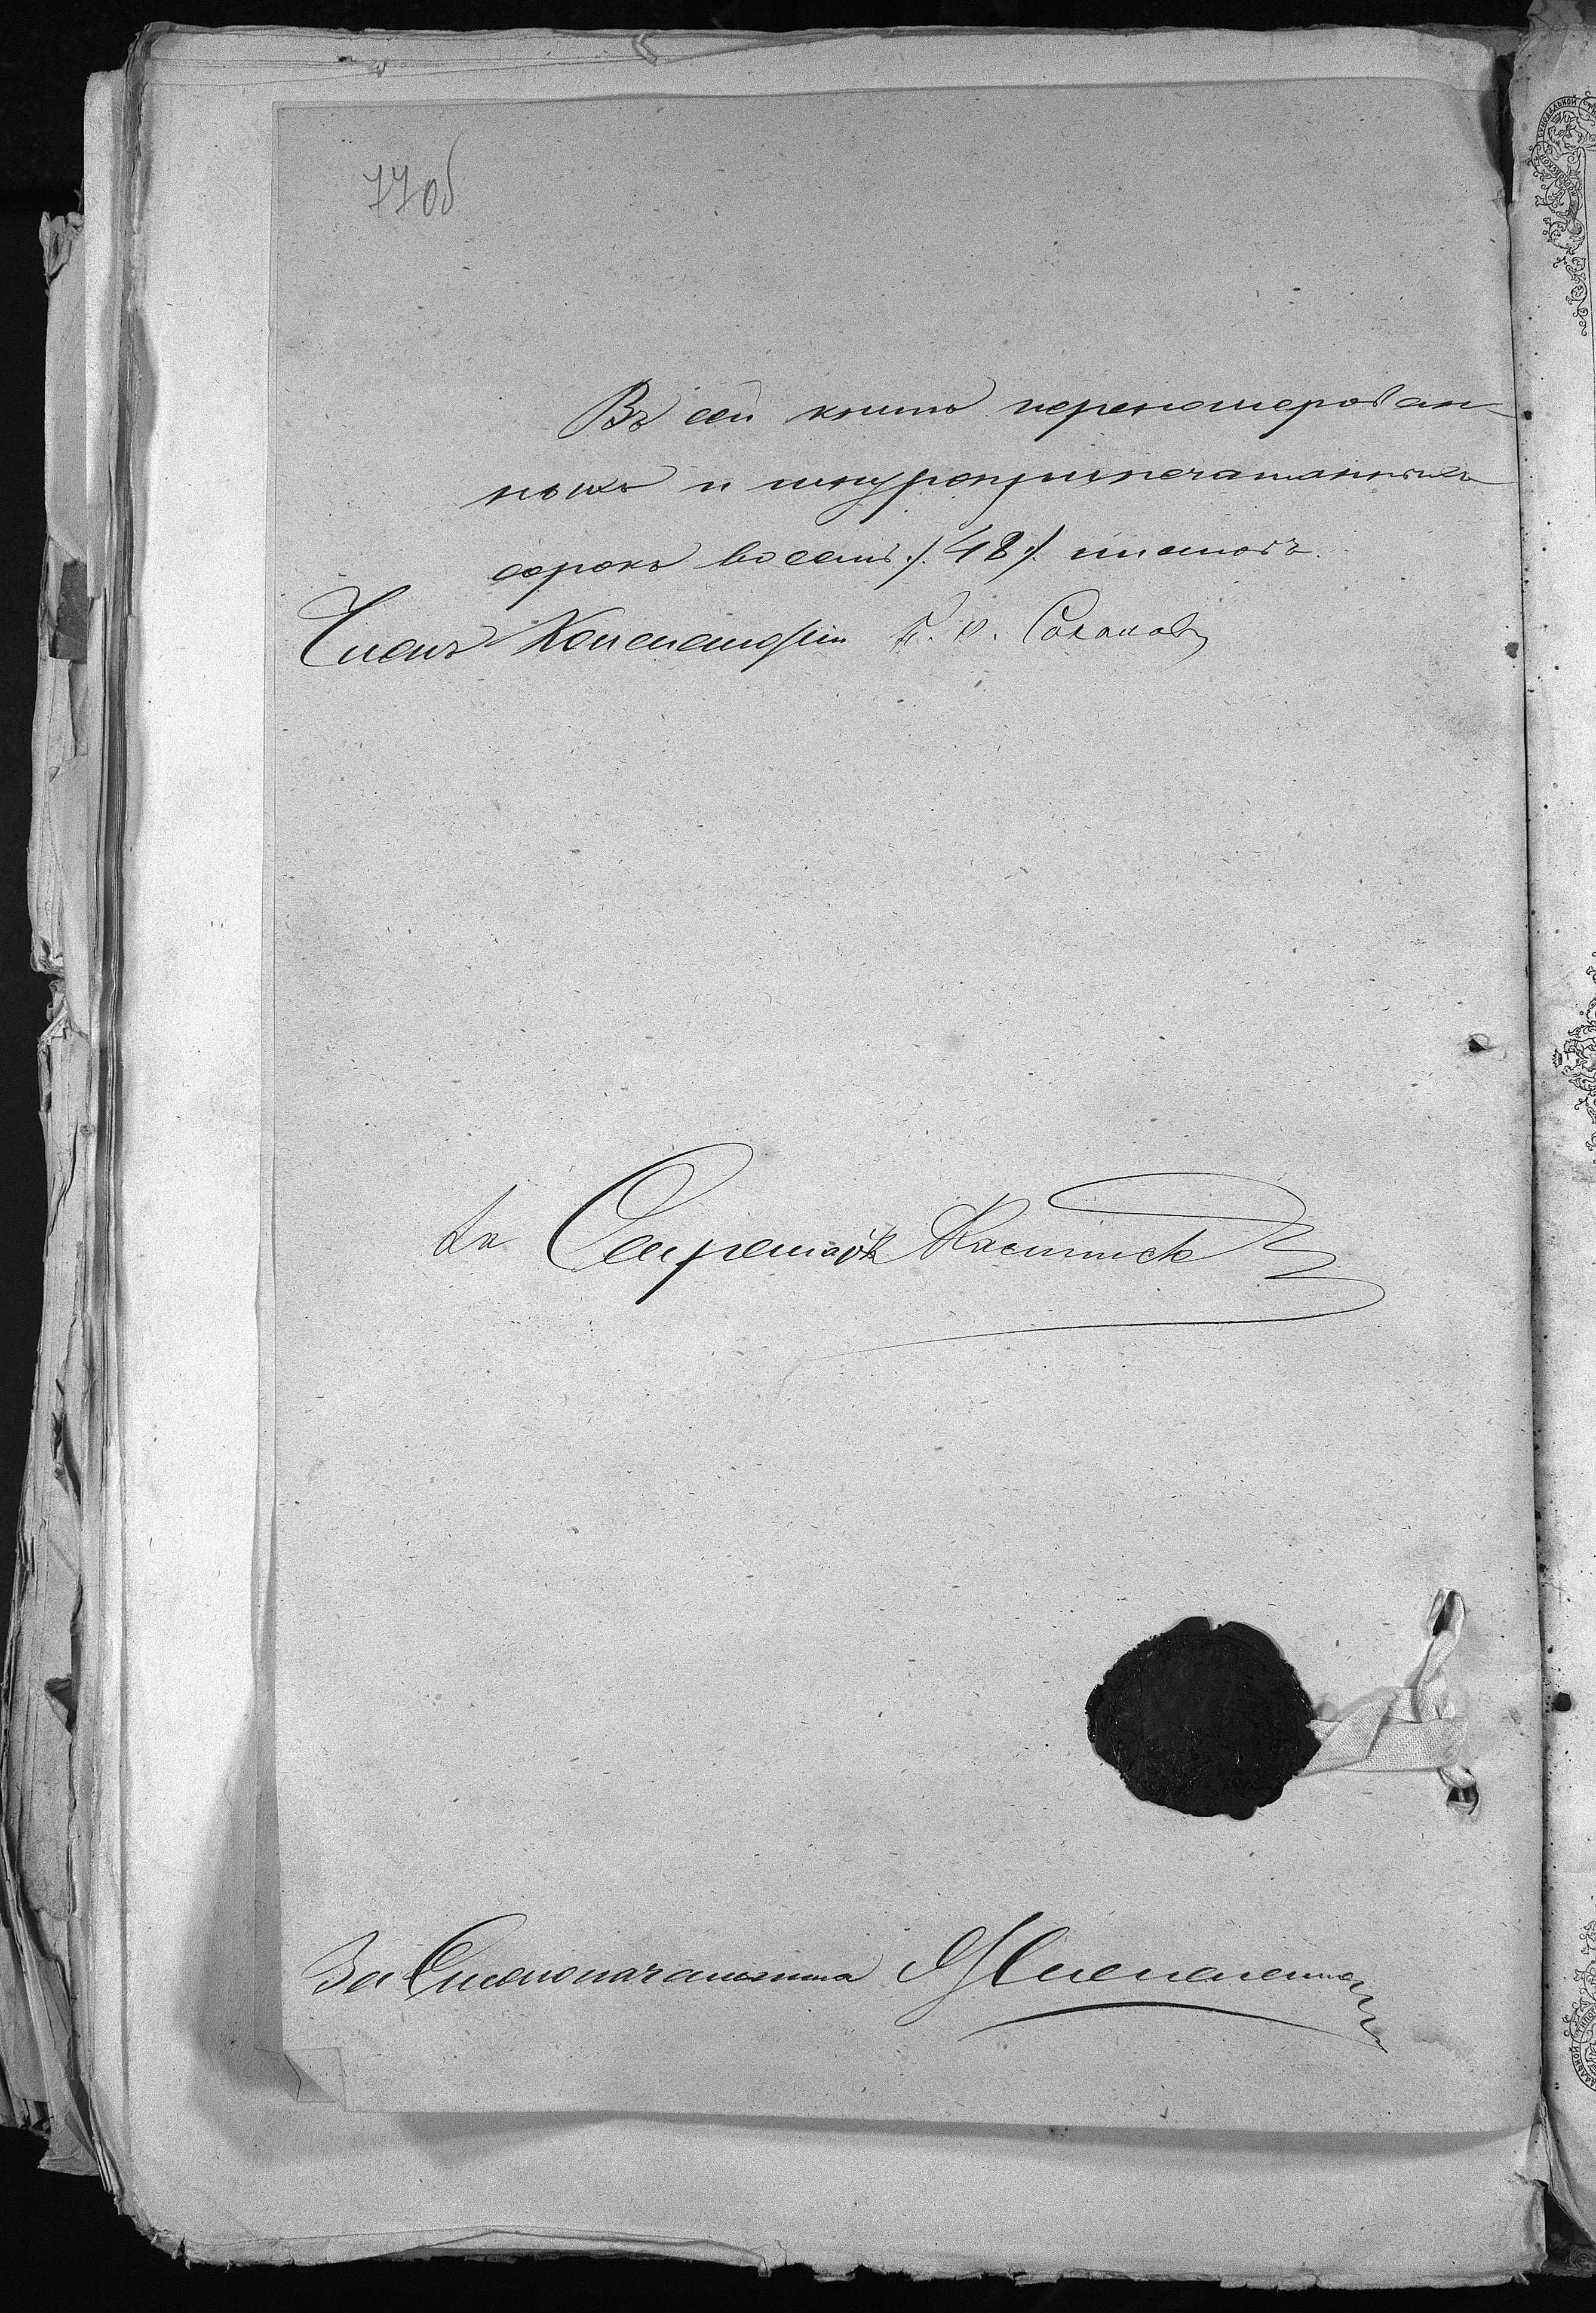 77 об
Въ сей книгѣ перенумерован-
ныхъ и шнуроприпечатанныхъ
сорокъ восемь ./. 48 ./. листовъ.
Членъ Консисторіи
За Секретаря
За Столоначальника